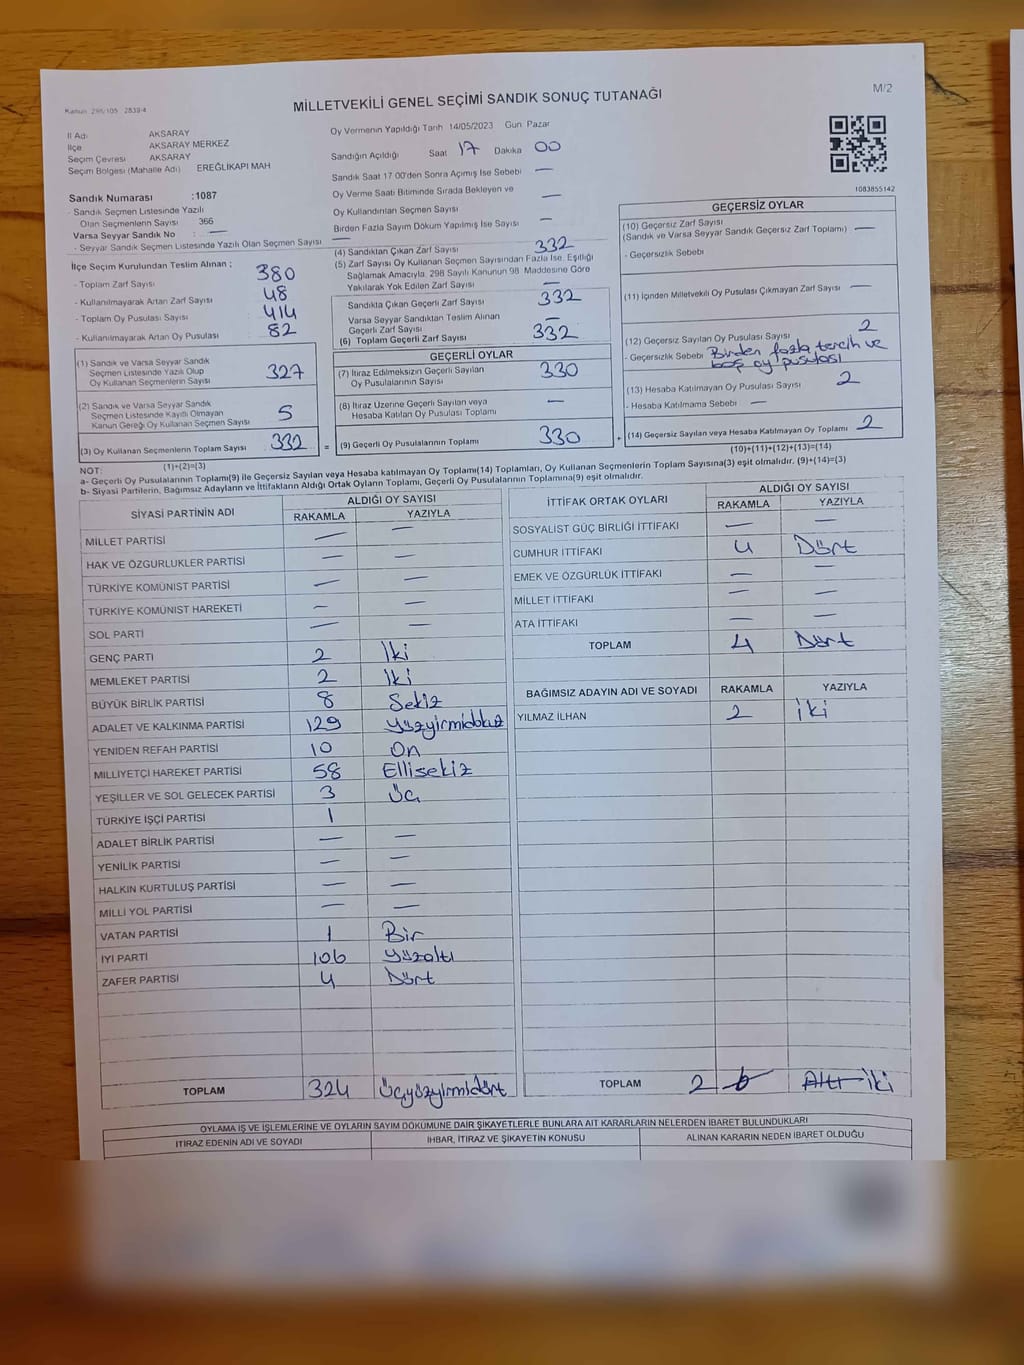 Kanun 298/105 2839-4
MİLLETVEKİLİ GENEL SEÇİMİ SANDIK SONUÇ TUTANAĞI
M/2
İl Adı AKSARAY
İlçe AKSARAY MERKEZ
Seçim Çevresi AKSARAY
Seçim Bölgesi (Mahalle Adı) EREĞLİKAPI MAH
Sandık Numarası :1087
- Sandık Seçmen Listesinde Yazılı
Olan Seçmenlerin Sayısı 366
Varsa Seyyar Sandık No : —
- Seyyar Sandık Seçmen Listesinde Yazılı Olan Seçmen Sayısı —
Oy Vermenin Yapıldığı Tarih 14/05/2023 Gün Pazar
Sandığın Açıldığı Saat 17 Dakika 00
Sandık Saat 17 00'den Sonra Açımış İse Sebebi —
Oy Verme Saati Bitiminde Sırada Bekleyen ve
Oy Kullandırılan Seçmen Sayısı —
Birden Fazla Sayım Döküm Yapılmış İse Sayısı —
1083855142
İlçe Seçim Kurulundan Teslim Alınan ;
- Toplam Zarf Sayısı 380
- Kullanılmayarak Artan Zarf Sayısı 48
- Toplam Oy Pusulası Sayısı 414
- Kullanılmayarak Artan Oy Pusulası 82
(1) Sandık ve Varsa Seyyar Sandık
Seçmen Listesinde Yazılı Olup
Oy Kullanan Seçmenlerin Sayısı 327
(2) Sandık ve Varsa Seyyar Sandık
Seçmen Listesinde Kayıtlı Olmayan
Kanun Gereği Oy Kullanan Seçmen Sayısı 5
(3) Oy Kullanan Seçmenlerin Toplam Sayısı 332 =
(1)+(2)=(3)
(4) Sandıktan Çıkan Zarf Sayısı 332
(5) Zarf Sayısı Oy Kullanan Seçmen Sayısından Fazla İse, Eşitliği
Sağlamak Amacıyla, 298 Sayılı Kanunun 98 Maddesine Göre
Yakılarak Yok Edilen Zarf Sayısı —
Sandıkta Çıkan Geçerli Zarf Sayısı 332
Varsa Seyyar Sandıktan Teslim Alınan
Geçerli Zarf Sayısı —
(6) Toplam Geçerli Zarf Sayısı 332
GEÇERLİ OYLAR
(7) İtiraz Edilmeksizin Geçerli Sayılan
Oy Pusulalarının Sayısı 330
(8) İtiraz Üzerine Geçerli Sayılan veya
Hesaba Katılan Oy Pusulası Toplamı —
(9) Geçerli Oy Pusulalarının Toplamı 330 +
GEÇERSİZ OYLAR
(10) Geçersiz Zarf Sayısı
(Sandık ve Varsa Seyyar Sandık Geçersiz Zarf Toplamı) —
- Geçersizlik Sebebi
(11) İçinden Milletvekili Oy Pusulası Çıkmayan Zarf Sayısı —
(12) Geçersiz Sayılan Oy Pusulası Sayısı 2
- Geçersizlik Sebebi Birden fazla tercih ve
boş oy pusulası
(13) Hesaba Katılmayan Oy Pusulası Sayısı 2
- Hesaba Katılmama Sebebi —
(14) Geçersiz Sayılan veya Hesaba Katılmayan Oy Toplamı 2
(10)+(11)+(12)+(13)=(14)
NOT:
a- Geçerli Oy Pusulalarının Toplamı(9) ile Geçersiz Sayılan veya Hesaba katılmayan Oy Toplamı(14) Toplamları, Oy Kullanan Seçmenlerin Toplam Sayısına(3) eşit olmalıdır. (9)+(14)=(3)
b- Siyasi Partilerin, Bağımsız Adayların ve İttifakların Aldığı Ortak Oyların Toplamı, Geçerli Oy Pusulalarının Toplamına(9) eşit olmalıdır.
SİYASİ PARTİNİN ADI ALDIĞI OY SAYISI
RAKAMLA YAZIYLA
MİLLET PARTİSİ — —
HAK VE ÖZGÜRLÜKLER PARTİSİ — —
TÜRKİYE KOMÜNİST PARTİSİ — —
TÜRKİYE KOMÜNİST HAREKETİ — —
SOL PARTİ — —
GENÇ PARTİ 2 İki
MEMLEKET PARTİSİ 2 İki
BÜYÜK BİRLİK PARTİSİ 8 Sekiz
ADALET VE KALKINMA PARTİSİ 129 Yüzyirmidokuz
YENİDEN REFAH PARTİSİ 10 On
MİLLİYETÇİ HAREKET PARTİSİ 58 Ellisekiz
YEŞİLLER VE SOL GELECEK PARTİSİ 3 Üç
TÜRKİYE İŞÇİ PARTİSİ 1
ADALET BİRLİK PARTİSİ — —
YENİLİK PARTİSİ — —
HALKIN KURTULUŞ PARTİSİ — —
MİLLİ YOL PARTİSİ — —
VATAN PARTİSİ 1 Bir
İYİ PARTİ 106 Yüzaltı
ZAFER PARTİSİ 4 Dört
TOPLAM 324 Üçyüzyirmidört
İTTİFAK ORTAK OYLARI ALDIĞI OY SAYISI
RAKAMLA YAZIYLA
SOSYALİST GÜÇ BİRLİĞİ İTTİFAKI — —
CUMHUR İTTİFAKI 4 Dört
EMEK VE ÖZGÜRLÜK İTTİFAKI — —
MİLLET İTTİFAKI — —
ATA İTTİFAKI — —
TOPLAM 4 Dört
BAĞIMSIZ ADAYIN ADI VE SOYADI RAKAMLA YAZIYLA
YILMAZ İLHAN 2 İki
TOPLAM 2 6 Altı İki
OYLAMA İŞ VE İŞLEMLERİNE VE OYLARIN SAYIM DÖKÜMÜNE DAİR ŞİKAYETLERLE BUNLARA AİT KARARLARIN NELERDEN İBARET BULUNDUKLARI
İTİRAZ EDENİN ADI VE SOYADI İHBAR, İTİRAZ VE ŞİKAYETİN KONUSU ALINAN KARARIN NEDEN İBARET OLDUĞU